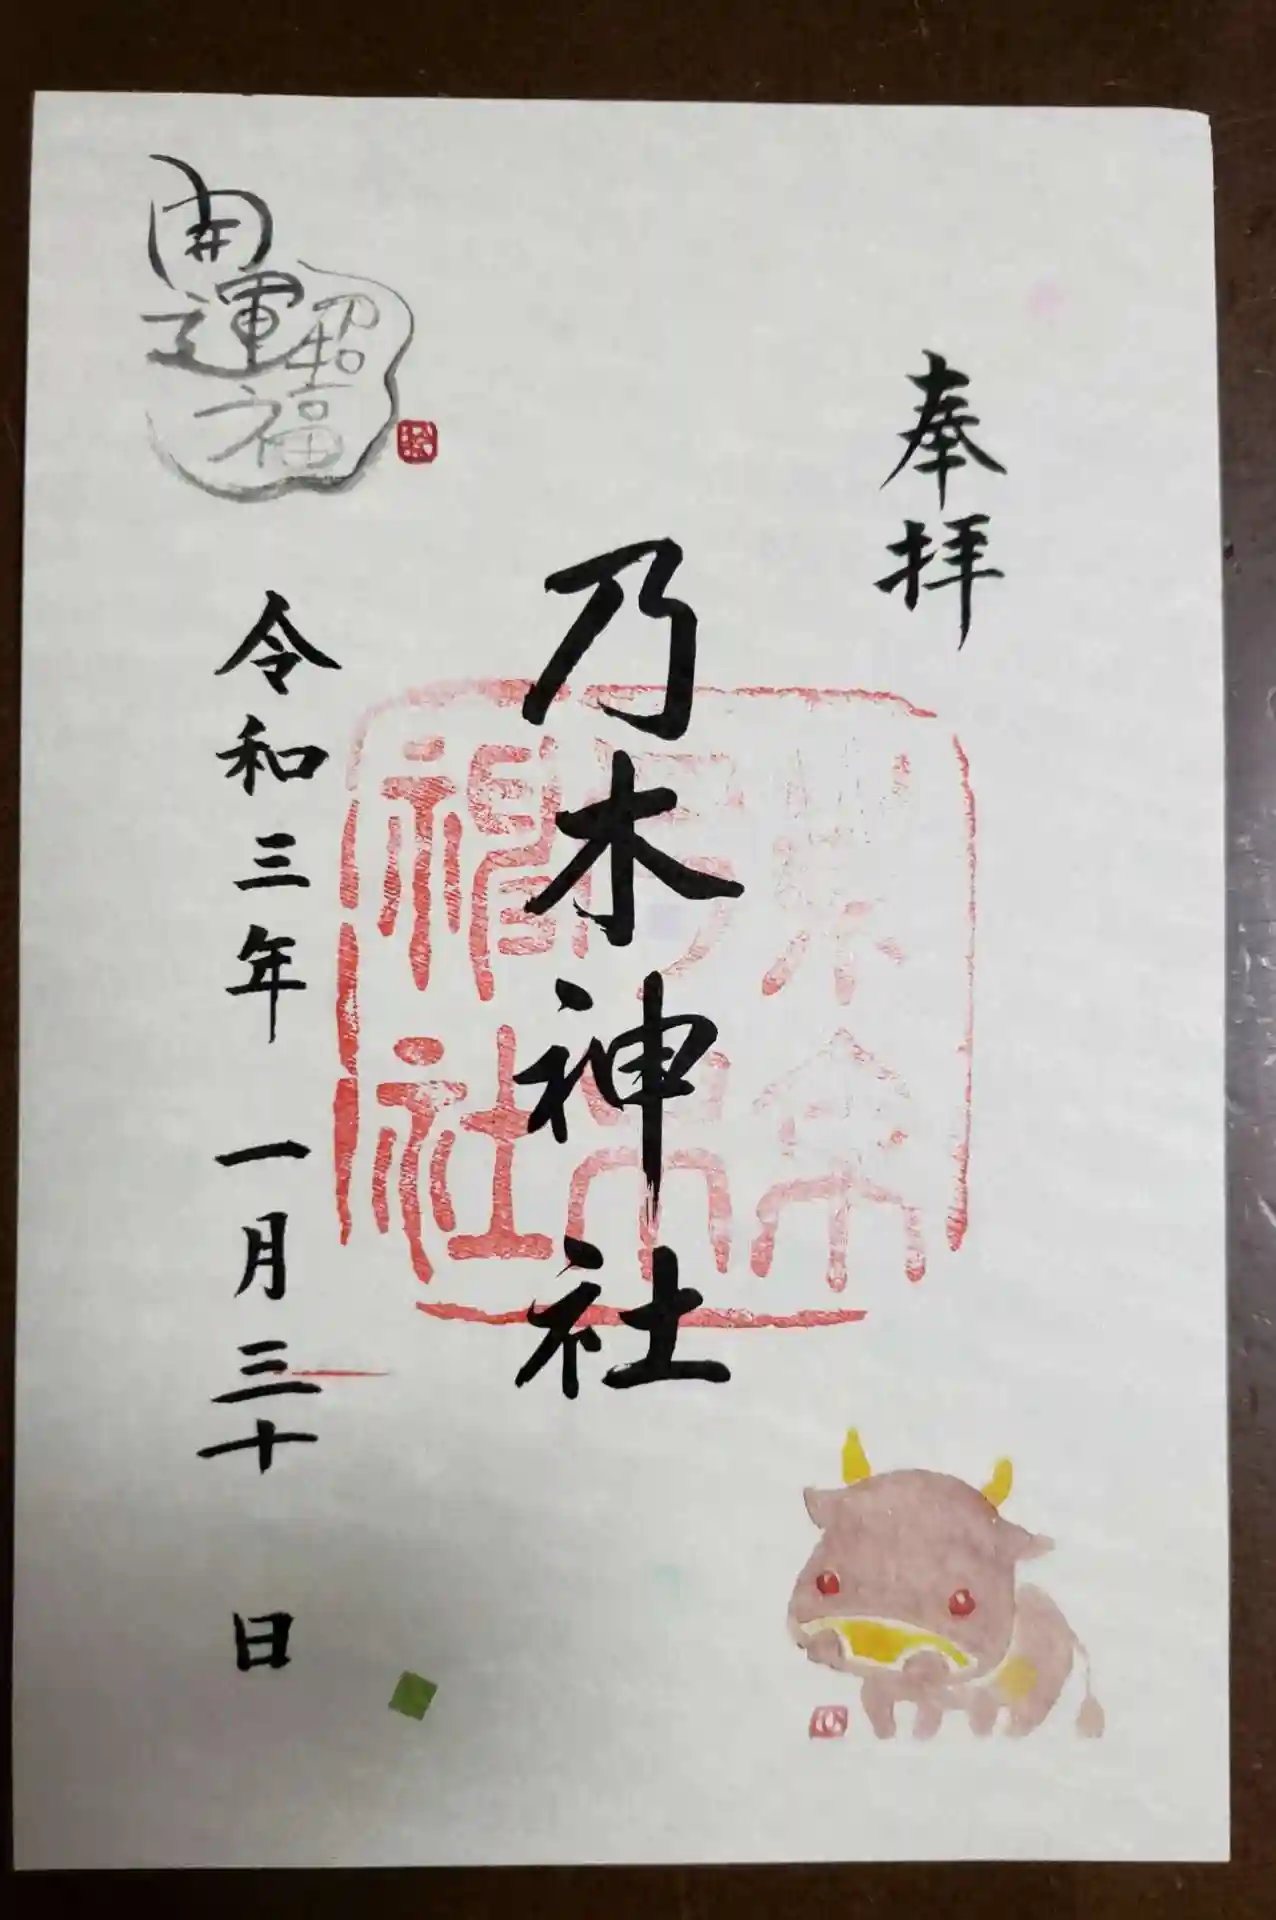 奉拝
乃木神社
令和三年 一月三十 日
開運招福
神社